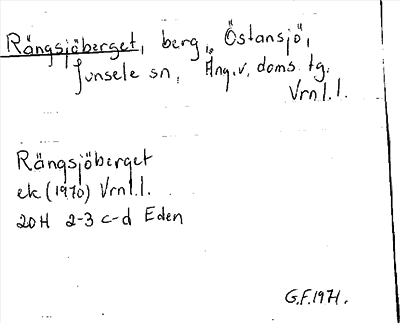 Rängsjöberget, berg, Östansjö,
Junsele sn, Ång.v. doms. tg.
Vrnl.l.
Rängsjöberget
ek (1970) Vrnl.l.
20H 2-3 c-d Eden
G.F. 1971.